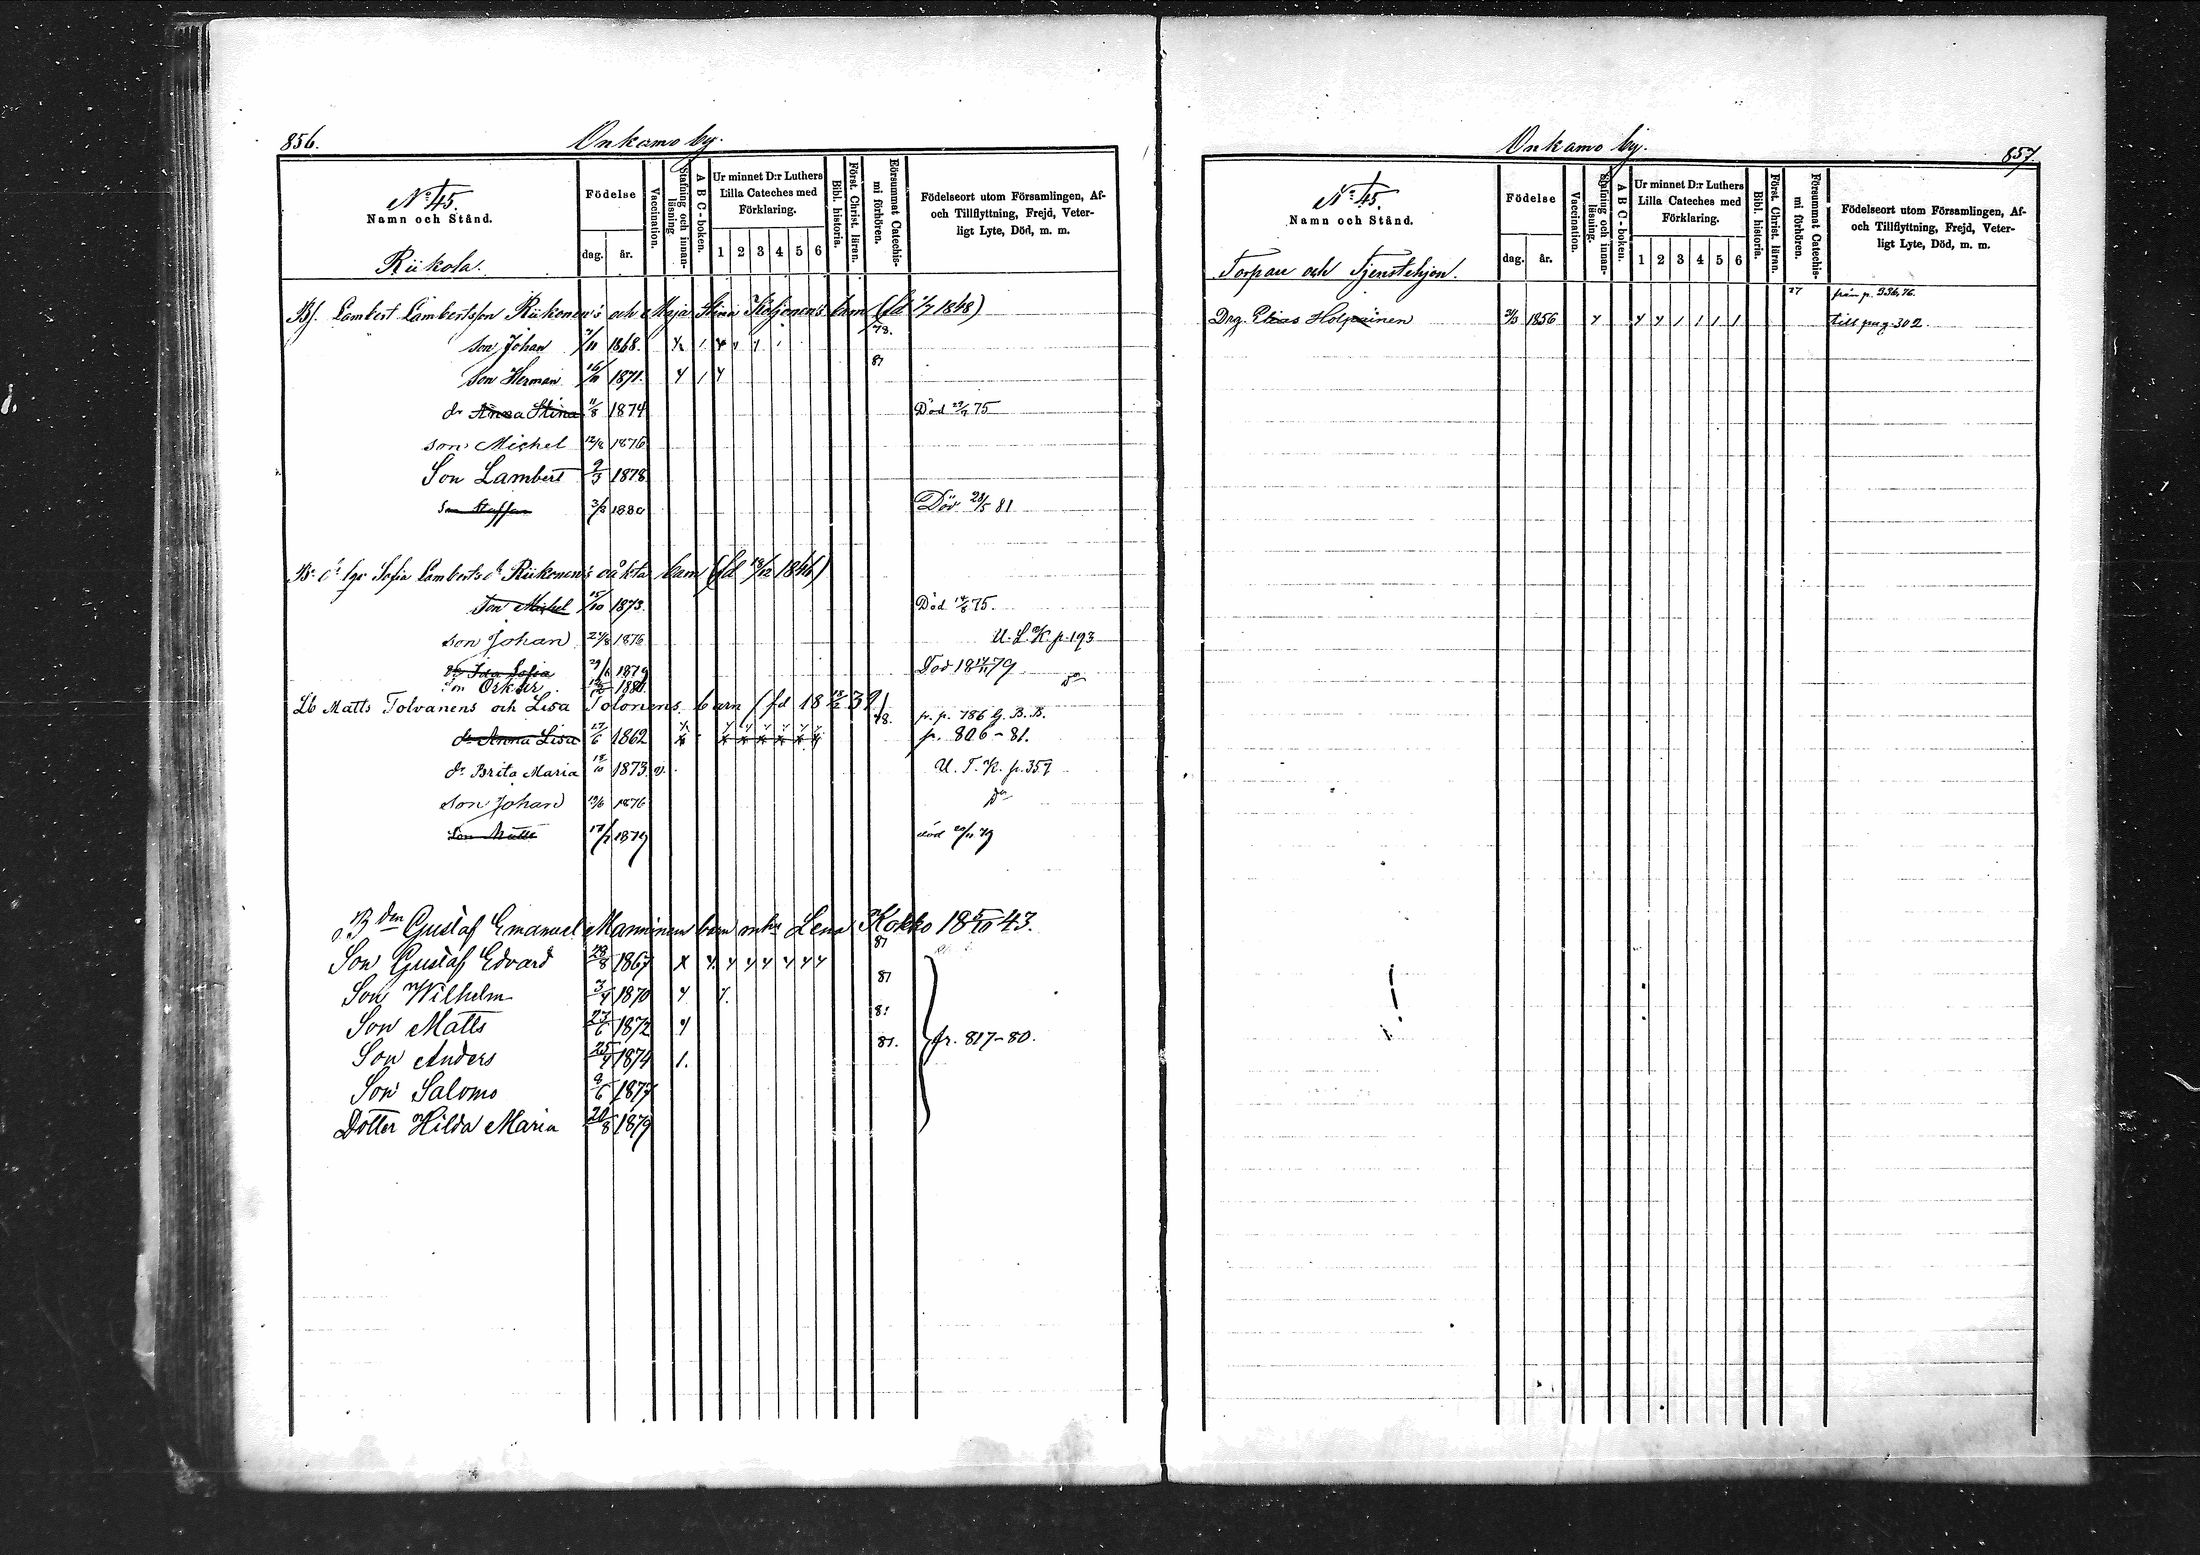 856. Onkamo by.
No 45.
Namn och Stånd.
Födelse
dag. år.
Vaccination.
Stafning och innan-läsning
A B C-boken.
Ur minnet D:r Luthers Lilla Cateches med Förklaring.
1 2 3 4 5 6
Bibl. historia.
Först. Christ. läran.
Försummat Catechis-mi förhören.
Födelseort utom Församlingen, Af-
och Tillflyttning, Frejd, Veter-
ligt Lyte, Död, m. m.
Riikola.
Bf. Lambert Lambertsson Riikonen's och Maja Stina Koljonen's barn (fd 1/7 1848)
son Johan 7/11 1868. 78.
son Herman 16/11 1871. 81
dr Anna Stina 11/8 1874 Död 29/7 75
son Michel 12/8 1876
Son Lambert 9/3 1878
son Staffan 3/8 1880 Död 28/5 81
Sofia Lamberts dr Riikonen's oäkta barn (fd 13/12 1846)
son Michel 15/10 1873. Död 14/8 75.
son Johan 24/8 1876 U. L. K. p. 193
dr Ida Sofia 29/6 1879 Död 18 14/11 79
son Oskar 1880. do
Lb Matts Tolvanens och Lisa Tolonens barn (fd 18 13/2 39) 78. fr. p. 786 G. B. B.
dr Anna Lisa 17/6 1862 p. 806-81.
dr Brita Maria 12/10 1873 v. U. T. K. p. 357
son Johan 19/6 1876 do
Son Matts 17/7 1879 död 20/11 79
Bden Gustaf Emanuel Manninen barn mhu Lena Kokko 18 5/10 43.
Son Gustaf Edvard 28/8 1867 81
Son Wilhelm 3/4 1870 81
Son Matts 23/6 1872 81
Son Anders 25/4 1874 81. fr. 817-80.
Son Salomo 9/6 1877
Dotter Hilda Maria 20/8 1879
Onkamo by. 857.
No 45.
Namn och Stånd.
Födelse
dag. år.
Vaccination.
Stafning och innan-läsning.
A B C-boken.
Ur minnet D:r Luthers Lilla Cateches med Förklaring.
1 2 3 4 5 6
Bibl. historia.
Först. Christ. läran.
Försummat Catechis-mi förhören.
Födelseort utom Församlingen, Af-
och Tillflyttning, Frejd, Veter-
ligt Lyte, Död, m. m.
Torpau och Tjenstehjon.
77 från p. 936, 76.
Drg. Elias Holpainen 21/3 1856 till pag 302.